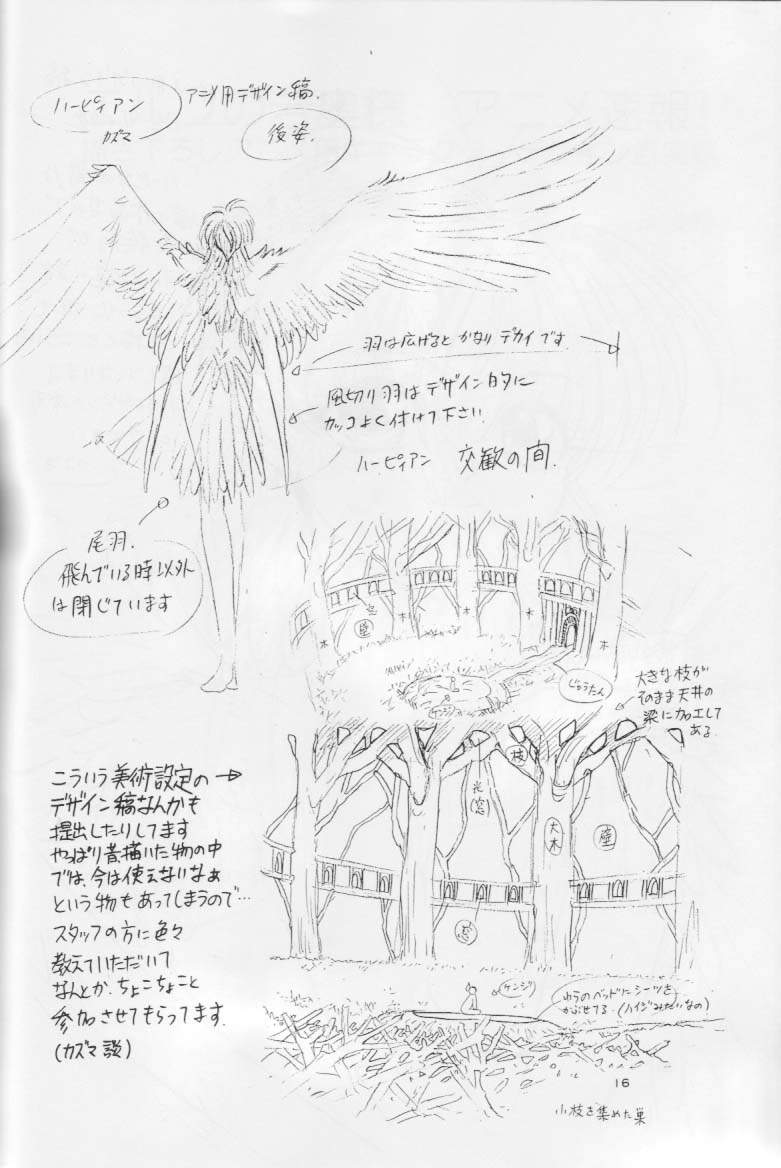 ハーピィアン
カズマ
アニメ用デザイン稿.
後姿.
羽は広げるとかなりデカイです
風切り羽はデザイン的に
カッコよく付けて下さい.
ハーピィアン 交歓の間.
尾羽.
飛んでいる時以外
は閉じています
窓
壁
木
木
木
木
じゅうたん
ケンジ
大きな枝が
そのまま天井の
梁に加工して
ある.
枝
光(窓)
大木
壁
窓
こういう美術設定の→
デザイン稿なんかも
提出したりしてます
やっぱり昔描いた物の中
では、今は使えないなぁ
という物もあってしまうので…
スタッフの方に色々
教えていただいて
なんとか、ちょこちょこと
参加させてもらってます.
(カズマ談)
ケンジ
わらのベッドにシーツを
かぶせてる.(ハイジみたいなの)
16
小枝を集めた巣